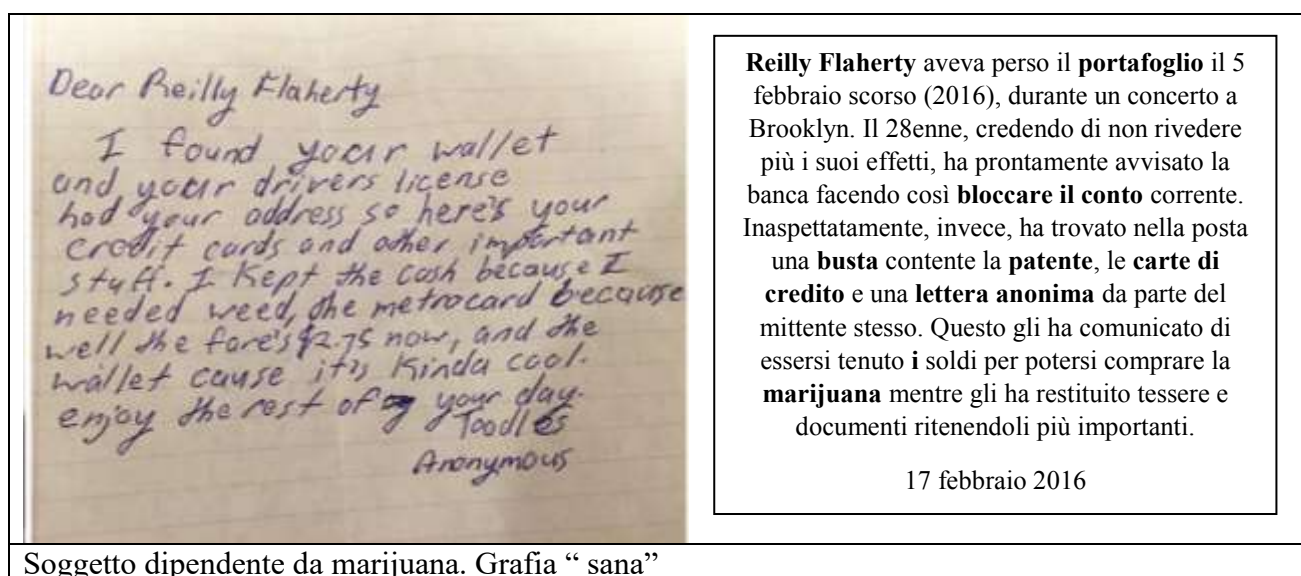 Dear Reilly Flaherty
I found your wallet
and your drivers license
had your address so here's your
credit cards and other important
stuff. I Kept the cash because I
needed weed, the metrocard because
well the fare's $2.75 now, and the
wallet cause it's kinda cool.
enjoy the rest of your day.
Toodles
Anonymous
Reilly Flaherty aveva perso il portafoglio il 5
febbraio scorso (2016), durante un concerto a
Brooklyn. Il 28enne, credendo di non rivedere
più i suoi effetti, ha prontamente avvisato la
banca facendo così bloccare il conto corrente.
Inaspettatamente, invece, ha trovato nella posta
una busta contente la patente, le carte di
credito e una lettera anonima da parte del
mittente stesso. Questo gli ha comunicato di
essersi tenuto i soldi per potersi comprare la
marijuana mentre gli ha restituito tessere e
documenti ritenendoli più importanti.
17 febbraio 2016
Soggetto dipendente da marijuana. Grafia “ sana”